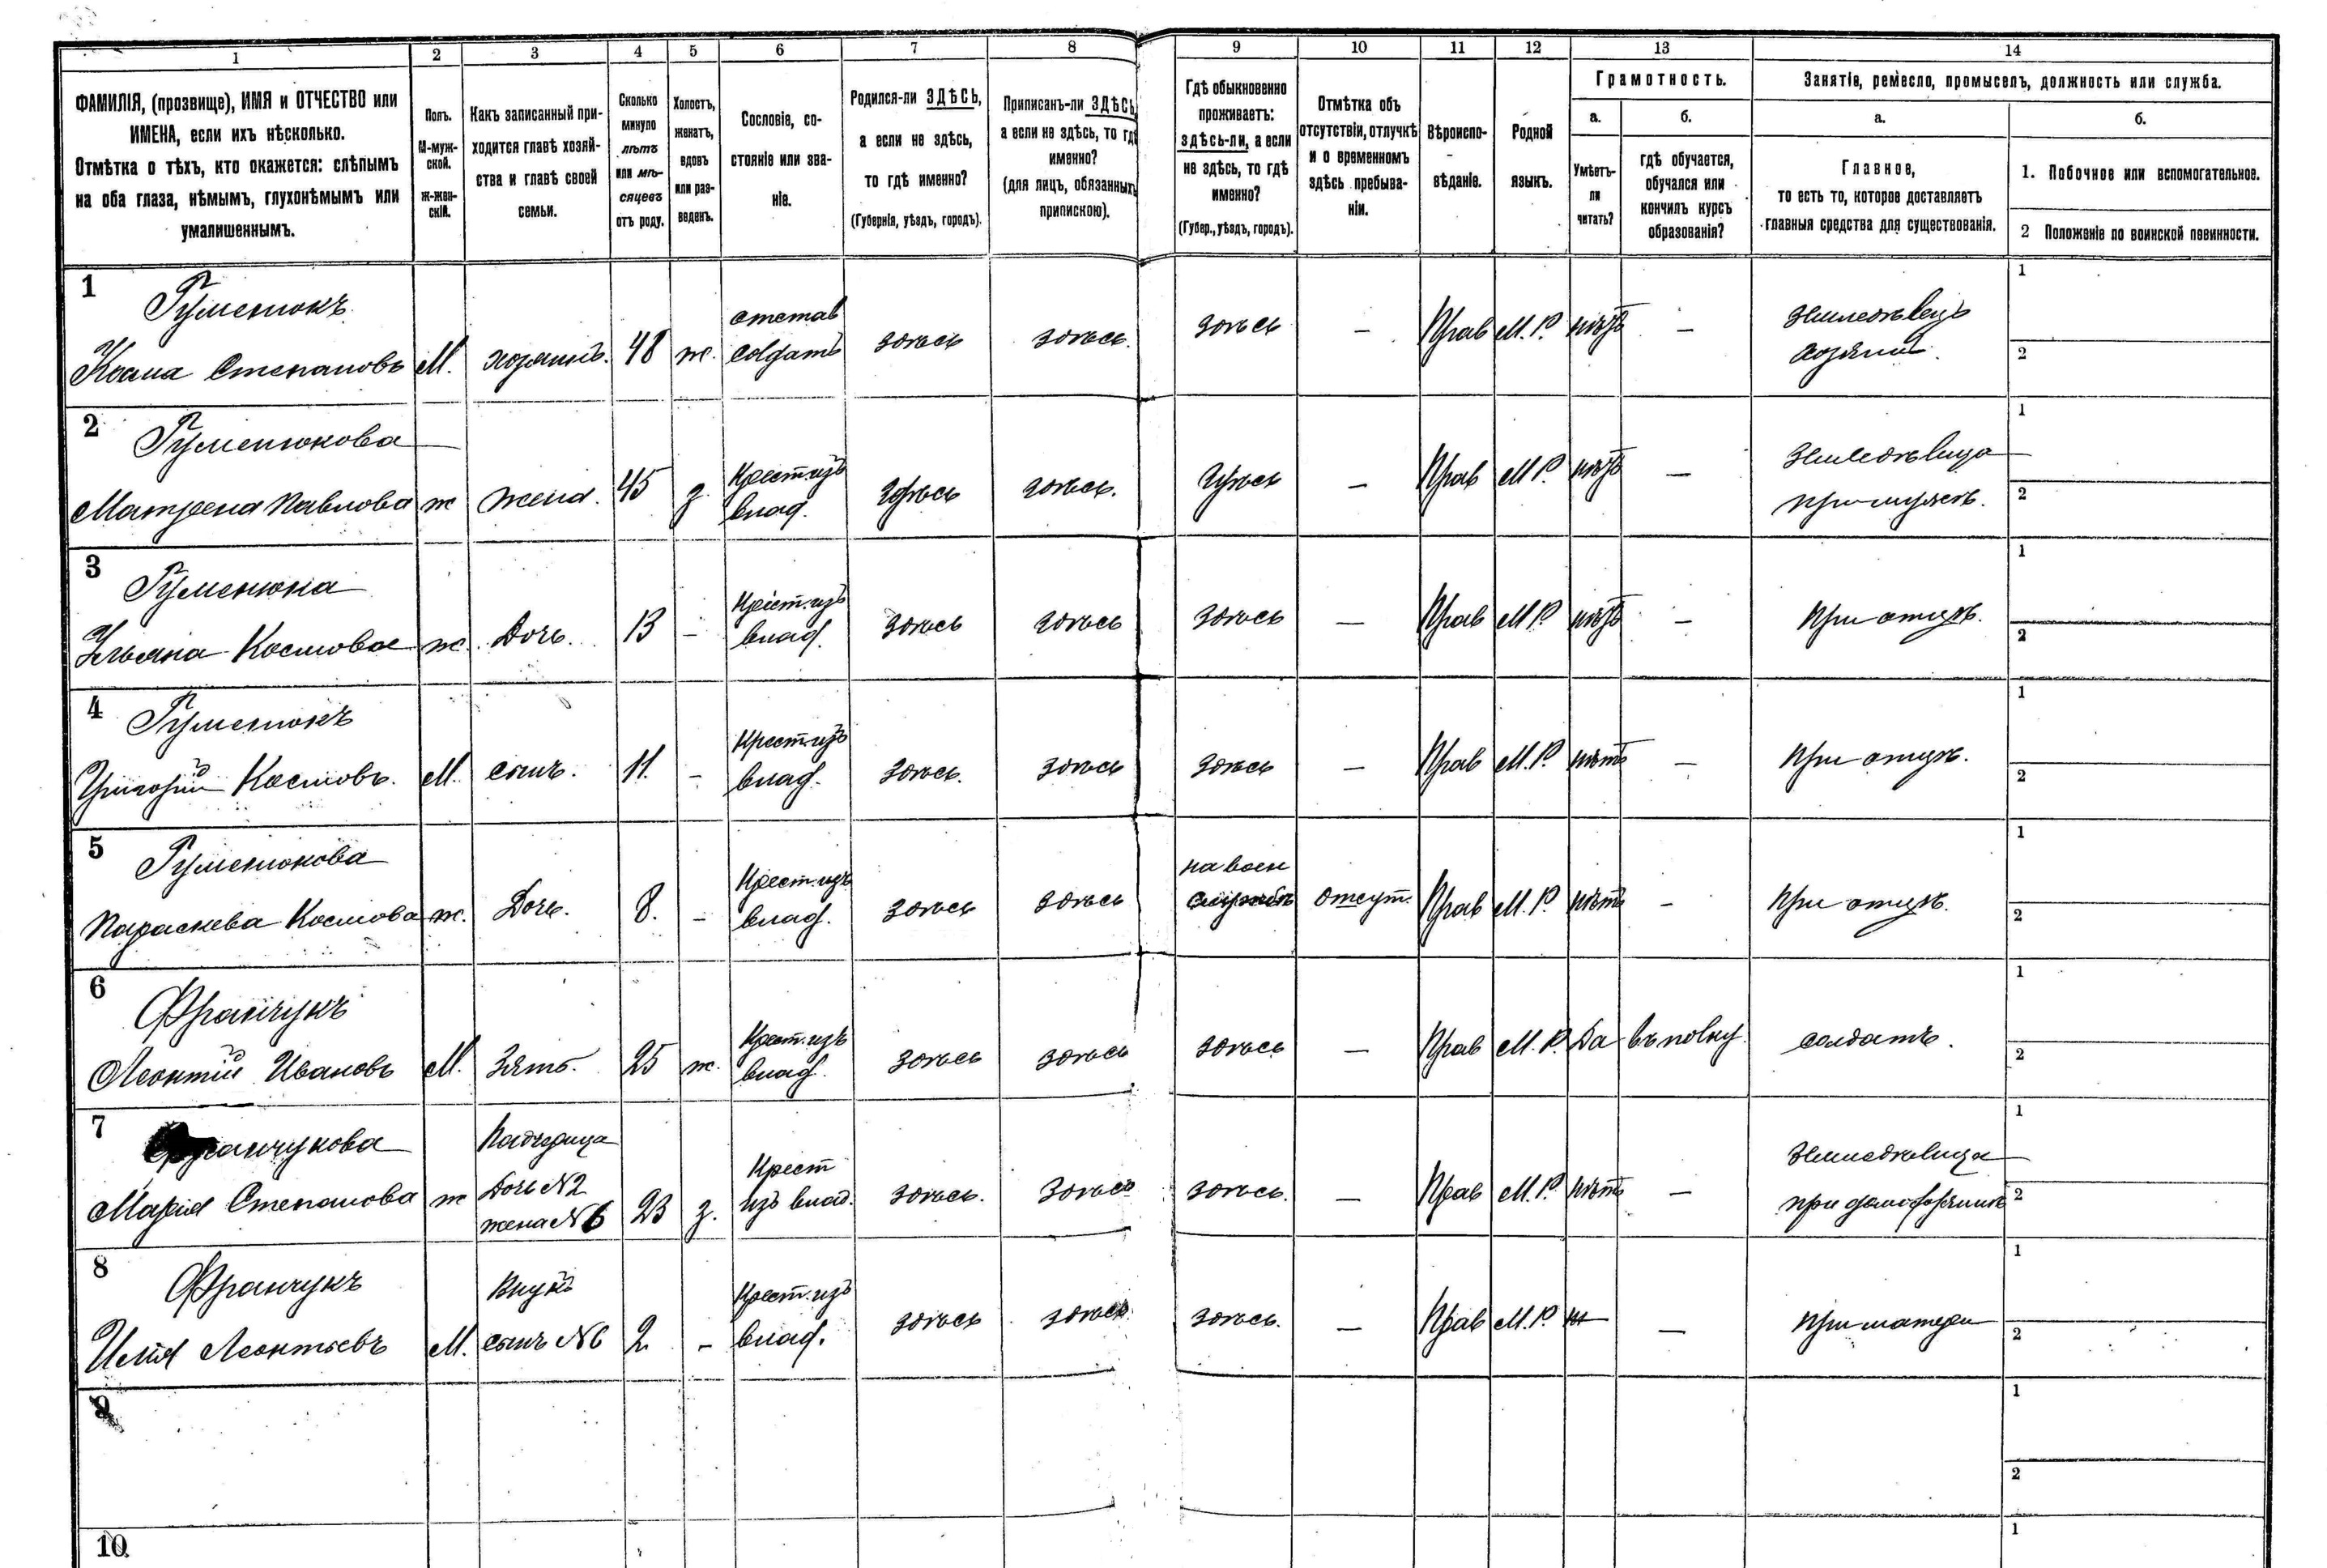 1 2 3 4 5 6 7 8 9 10 11 12 13 14
ФАМИЛІЯ, (прозвище), ИМЯ и ОТЧЕСТВО или
ИМЕНА, если ихъ нѣсколько.
Отмѣтка о тѣхъ, кто окажется: слѣпымъ
на оба глаза, нѣмымъ, глухонѣмымъ или
умалишеннымъ.
Полъ.
М-муж-
ской.
ж-жен-
скій.
Какъ записанный при-
ходится главѣ хозяй-
ства и главѣ своей
семьи.
Сколько
минуло
лѣтъ
или мѣ-
сяцевъ
отъ роду.
Холостъ,
женатъ,
вдовъ
или раз-
веденъ.
Сословіе, со-
стояніе или зва-
ніе.
Родился-ли ЗДѢСЬ,
а если не здѣсь,
то гдѣ именно?
(Губернія, уѣздъ, городъ).
Приписанъ-ли ЗДѢСЬ
а если не здѣсь, то гдѣ
именно?
(для лицъ, обязанныхъ
припискою).
Гдѣ обыкновенно
проживаетъ:
здѣсь-ли, а если
не здѣсь, то гдѣ
именно?
(Губер., уѣздъ, городъ).
Отмѣтка объ
отсутствіи, отлучкѣ
и о временномъ
здѣсь пребыва-
ніи.
Вѣроиспо-
вѣданіе.
Родной
языкъ.
Грамотность.
а.
Умѣетъ-
ли
читать?
б.
гдѣ обучается,
обучался или
кончилъ курсъ
образованія?
Занятія, ремесло, промыселъ, должность или служба.
а.
Главное,
то есть то, которое доставляетъ
главныя средства для существованія.
б.
1. Побочное или вспомогательное.
2 Положеніе по воинской повинности.
1
Гуменюкъ
Косма Степановъ М. хозяинъ. 48 ж.
отстав
солдатъ
здѣсь здѣсь. здѣсь — Прав М. Р. нѣтъ —
земледѣлецъ
хозяинъ.
1
2
2
Гуменюкова
Матрена Павлова ж жена. 45 з.
Крест. изъ
влад.
здѣсь здѣсь. здѣсь — Прав М Р. нѣтъ —
земледѣлица
при мужѣ.
1
2
3
Гуменюка
Ульяна Космова ж. Дочь. 13 –
Крест. изъ
влад.
здѣсь здѣсь здѣсь — Прав М Р. нѣтъ –
При отцѣ.
1
2
4
Гуменюкъ
Григорій Космовъ. М. сынъ. 11. –
Крест. изъ
влад.
здѣсь. здѣсь здѣсь — Прав М. Р. нѣтъ —
При отцѣ.
1
2
5
Гуменюкова
Параскева Космова ж. Дочь. 8. –
Крест. изъ
влад.
здѣсь здѣсь
на воен
службѣ
отсут. Прав М. Р. нѣтъ –
При отцѣ.
1
2
6
Франчукъ
Леонтій Ивановъ М. Зять. 25 ж.
Крест. изъ
влад.
здѣсь здѣсь здѣсь — Прав М. Р. Да въ полку.
солдатъ.
1
2
7
Франчукова
Марія Степанова ж
Падчерица
Дочь №2
жена №6
23 з.
Крест
изъ влад.
здѣсь. здѣсь здѣсь. — Прав М. Р. нѣтъ —
земледѣлица
1
2
8
Франчукъ
Илія Леонтьевъ М.
Внукъ
сынъ №6
2 –
Крест. изъ
влад.
здѣсь здѣсь. здѣсь. — Прав М. Р. —
При матери
1
2
9
1
2
10
1